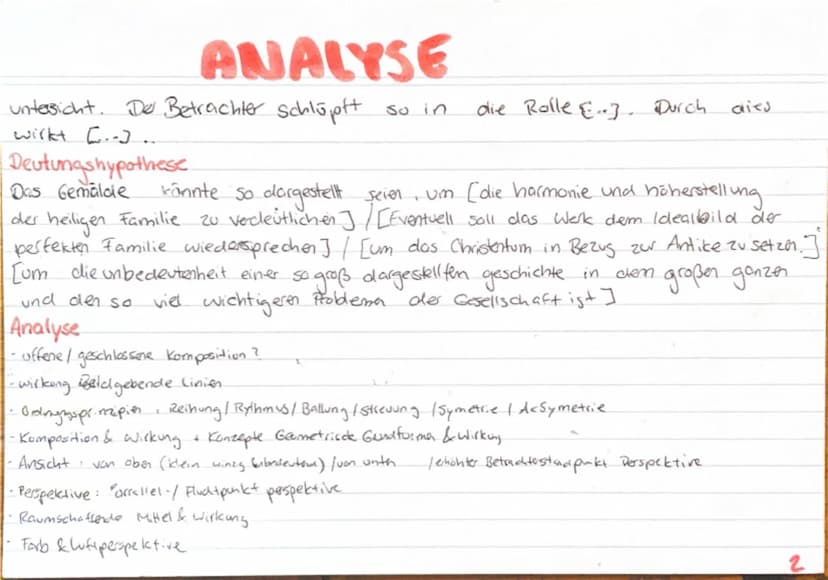 ANALYSE
untersicht. Der Betrachter schlüpft so in die Rolle [...]. Durch dies
wirkt [...]..
Deutungshypothese
Das Gemälde könnte so dargestellt seien, um [die harmonie und höherstellung
der heiligen Familie zu verdeutlichen] / [Eventuell soll das Werk dem Idealbild der
perfekten Familie wiedersprechen] / [um das Christentum in Bezug zur Antike zu setzen.]
[um die unbedeutenheit einer so groß dargestellten geschichte in dem großen ganzen
und den so viel wichtigeren Problemen der Gesellschaft ist]
Analyse
- offene / geschlossene Komposition?
- wirkung Bildgebende Linien
- Ordnungsprinzipien: Reihung / Rythmus / Ballung / streuung / Symetrie / Asymetrie
- Komposition & Wirkung + Konzepte Geometrische Grundformen & Wirkung
- Ansicht: von oben (klein winzig unbedeutend) / von unten / erhöhter Betrachterstandpunkt Perspektive
- Perspektive: Parrallel-/ Fluchtpunkt perspektive
- Raumschaffende Mittel & Wirkung
- Farb & Luftperspektive
2